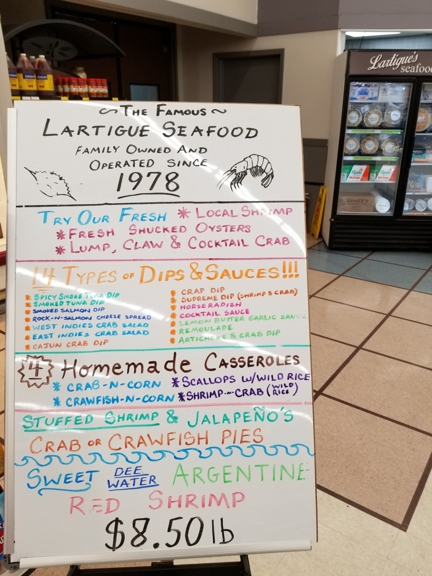 ~ The Famous ~
Lartigue Seafood
Family Owned And
Operated Since
1978
Try Our Fresh * Local Shrimp
* Fresh Shucked Oysters
* Lump, Claw & Cocktail Crab
14 Types of Dips & Sauces!!!
Spicy Smoke Tuna Dip
Smoked Tuna Dip
Smoked Salmon Dip
Rock-N-Salmon Cheese Spread
West Indies Crab Salad
East Indies Crab Salad
Cajun Crab Dip
Crab Dip
Supreme Dip (Shrimp & Crab)
Horseradish
Cocktail Sauce
Lemon Butter Garlic
Remoulade
Artichoke & Crab Dip
4 Homemade Casseroles
* Crab-N-Corn * Scallops w/Wild Rice
* Crawfish-N-Corn * Shrimp-N-Crab (Wild Rice)
Stuffed Shrimp & Jalapeño's
Crab or Crawfish Pies
Sweet Dee Water Argentine
Red Shrimp
$8.50 lb
Lartigue's
seafood